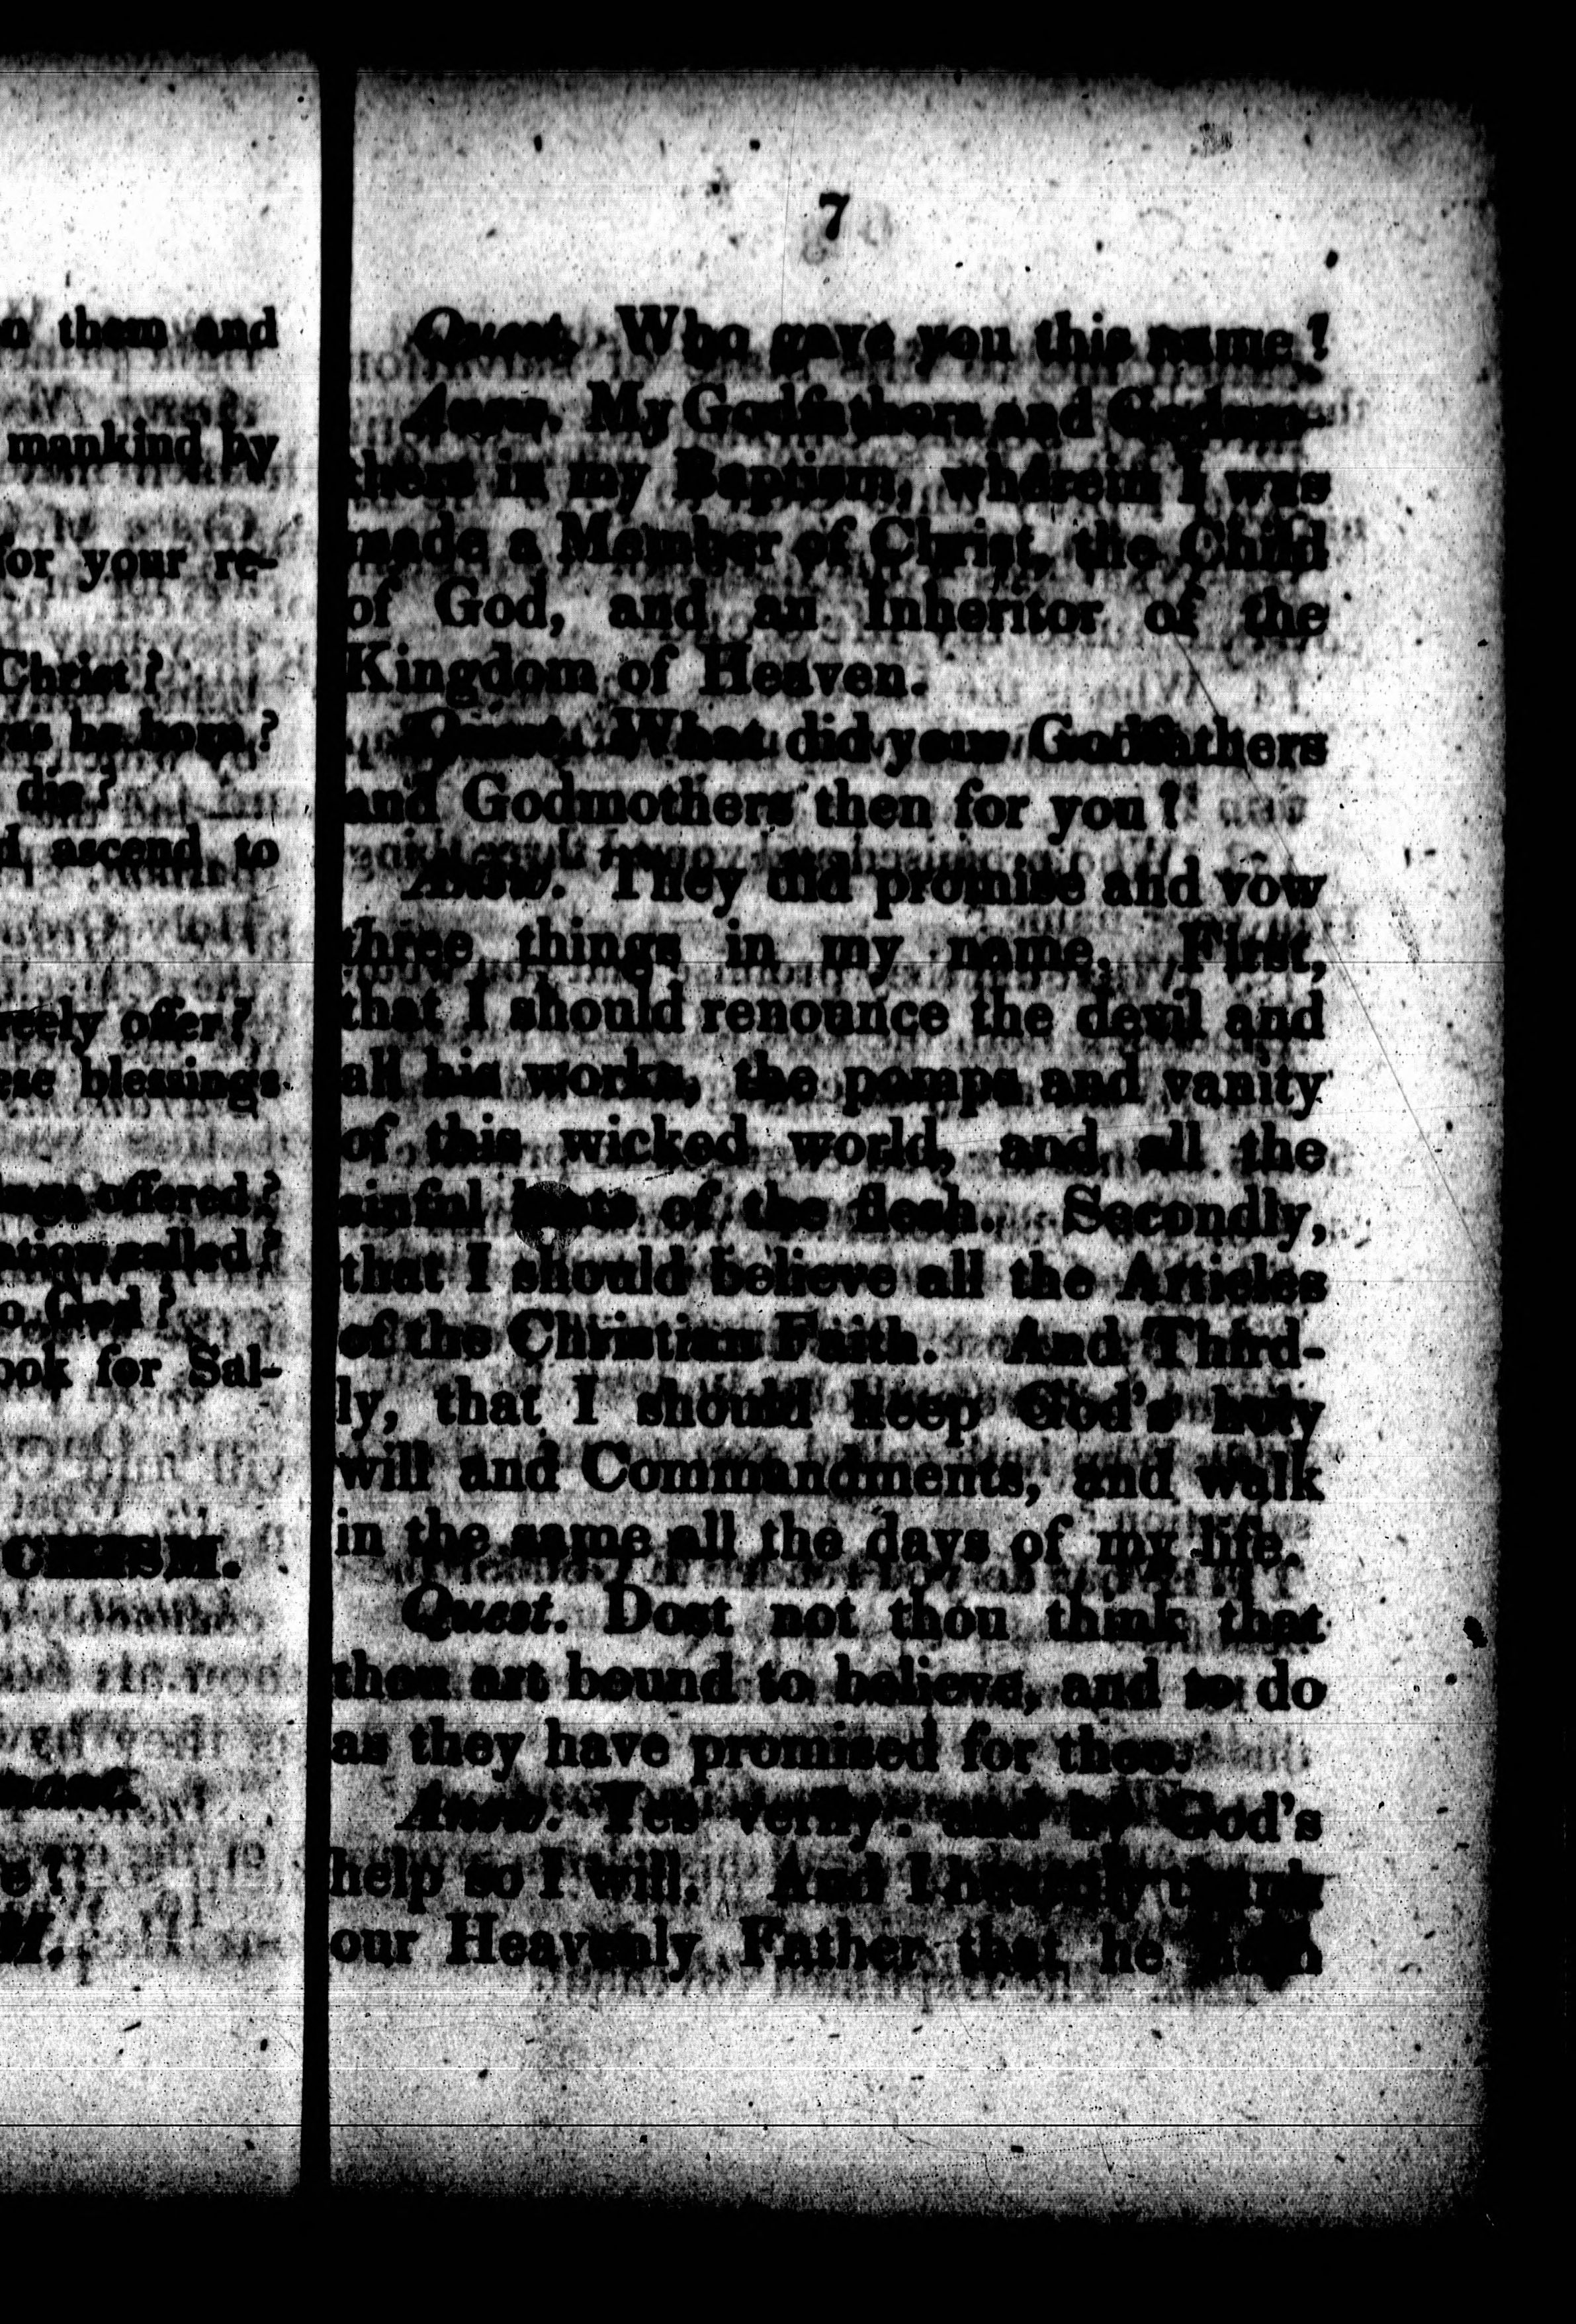 them and
mankind by
for your re-
Christ?
as he born?
die?
ascend to
reely offer?
ese blessings
ings offered?
ation called?
o God?
ook for Sal-
CHISM.
M.
7
Quest. Who gave you this name?
Answ. My Godfathers and Godmo-
thers in my Baptism, wherein I was
made a Member of Christ, the Child
of God, and an Inheritor of the
Kingdom of Heaven.
Quest. What did your Godfathers
and Godmothers then for you?
Answ. They did promise and vow
three things in my name. First,
that I should renounce the devil and
all his works, the pomps and vanity
of this wicked world, and all the
sinful lusts of the flesh. Secondly,
that I should believe all the Articles
of the Christian Faith. And Third-
ly, that I should keep God's holy
will and Commandments, and walk
in the same all the days of my life.
Quest. Dost not thou think that
thou art bound to believe, and to do
as they have promised for thee.
Answ. Yes verily: and by God's
help so I will. And I heartily thank
our Heavenly Father that he hath